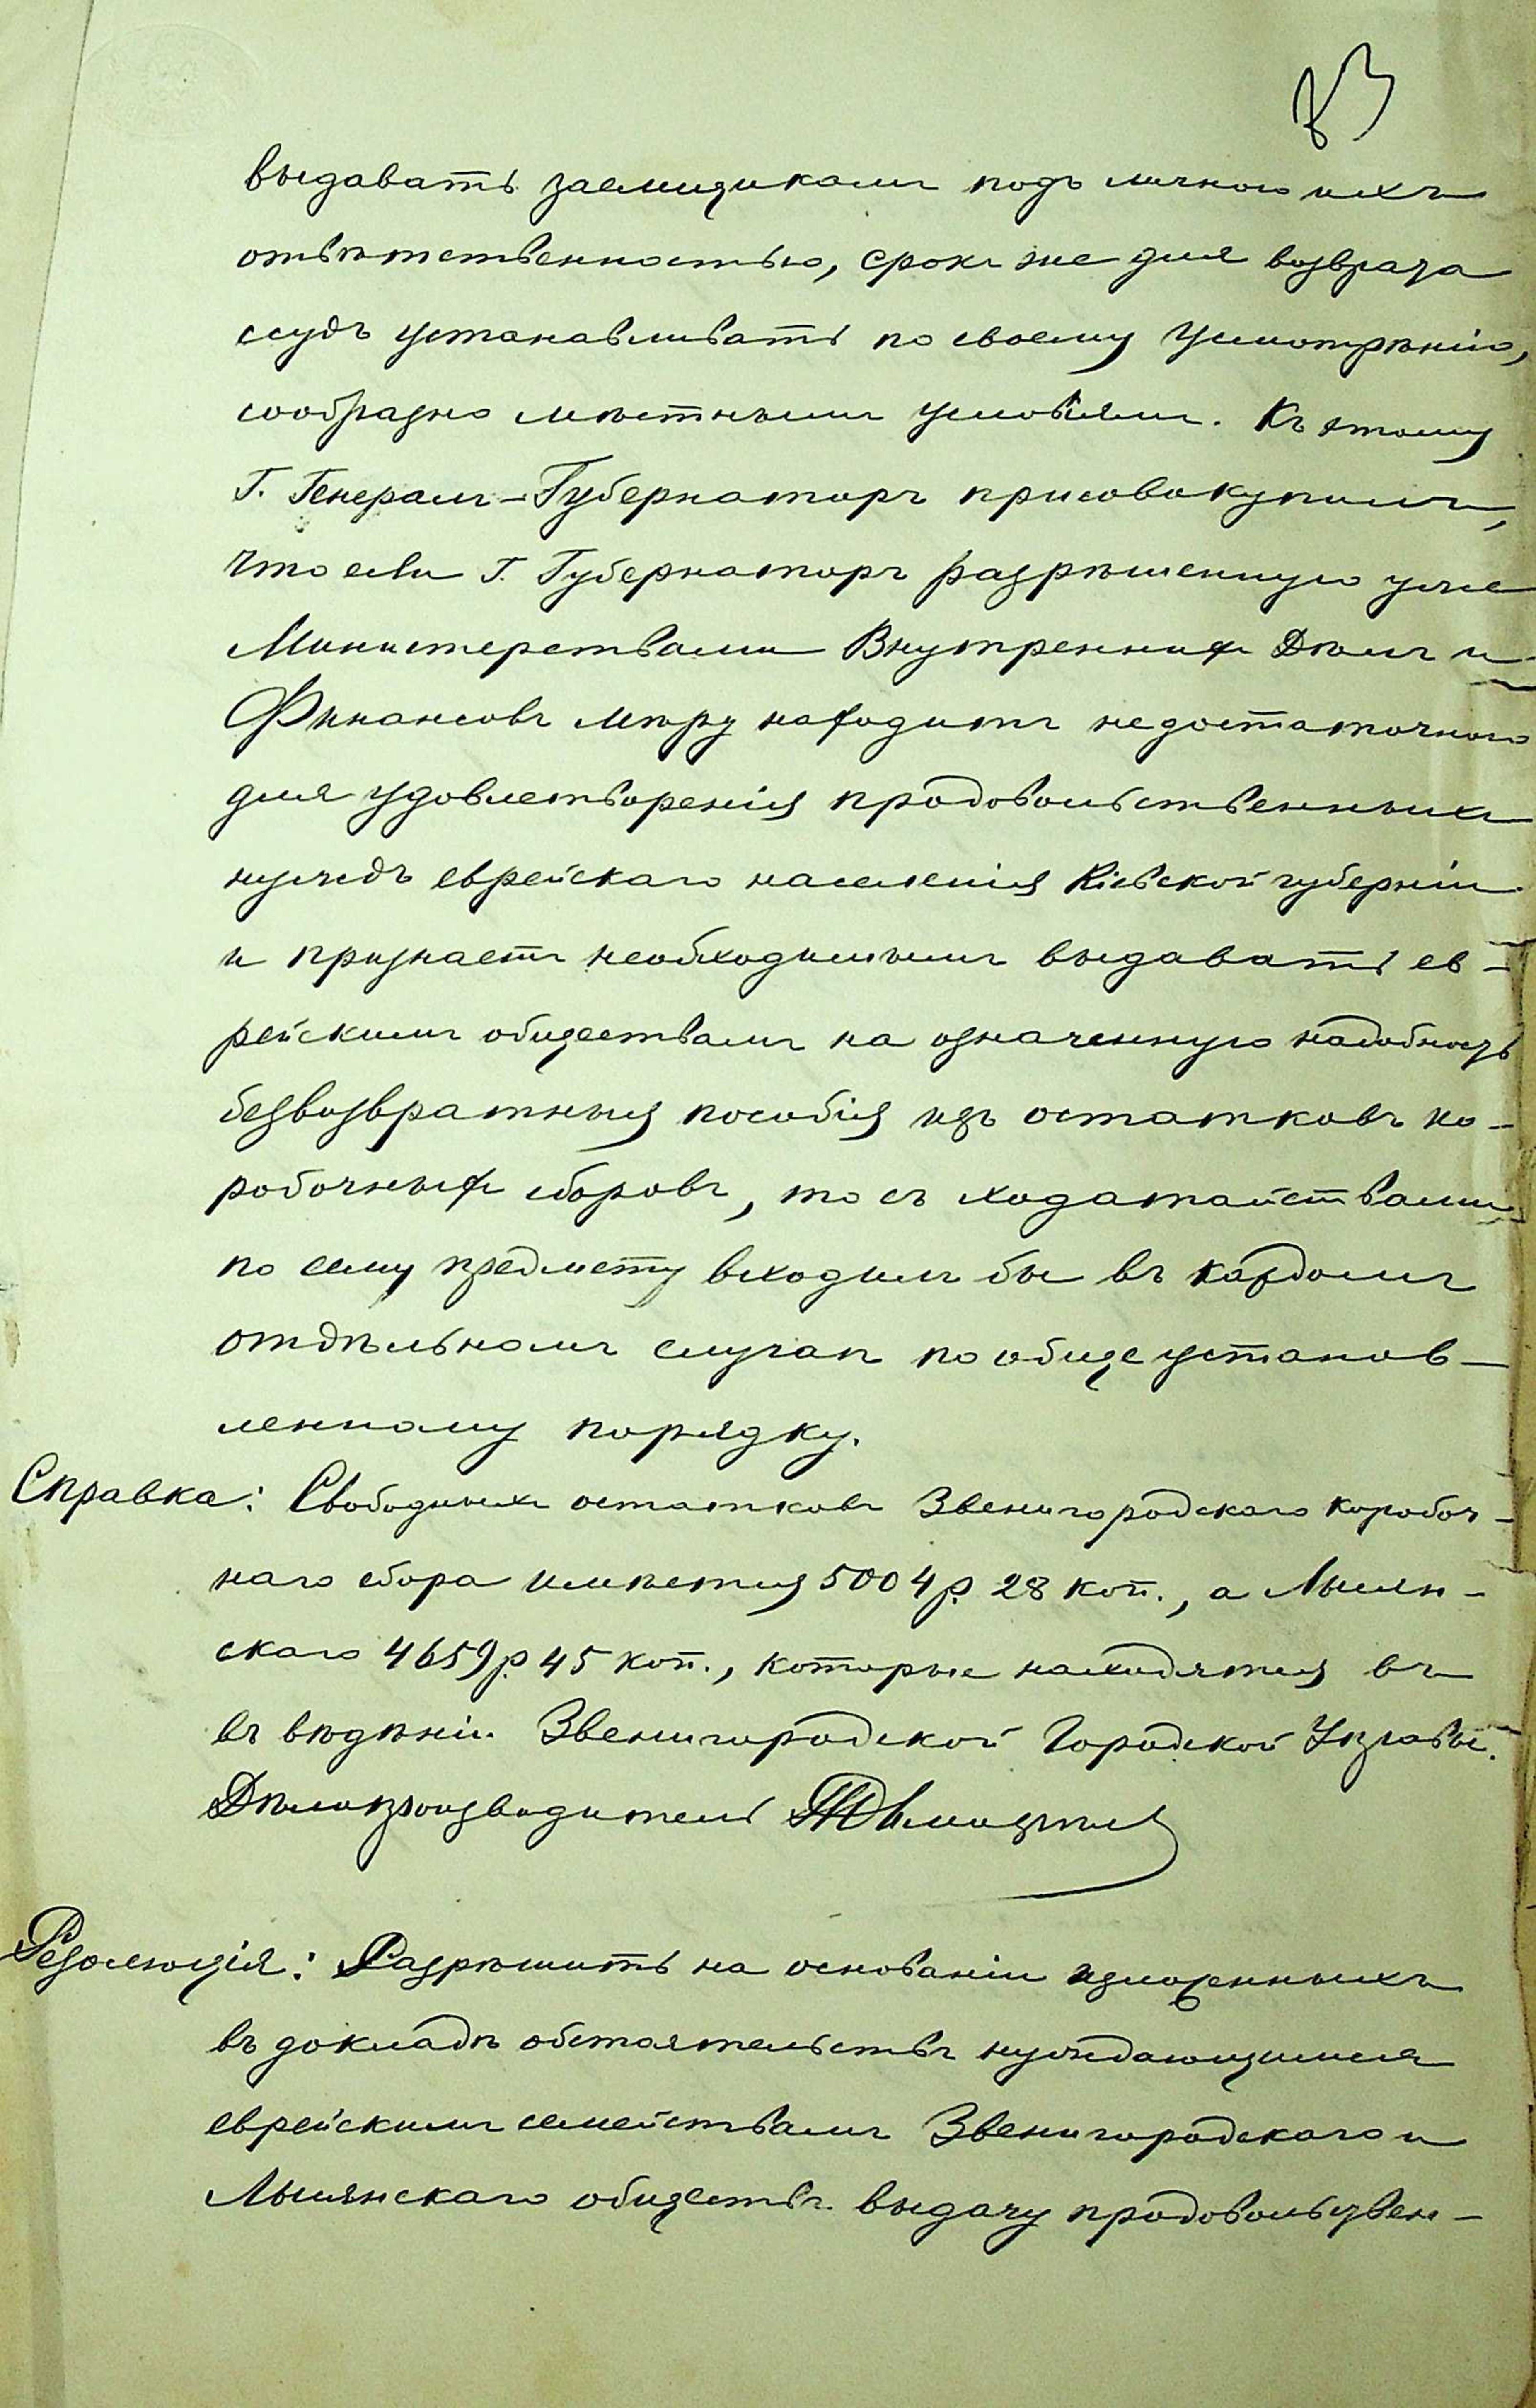 83
выдавать заемщикамъ подъ личною ихъ
отвѣтственностью, срокъ же для возврата
ссудъ устанавливать по своему усмотрѣнію,
сообразно мѣстнымъ условіямъ. Къ этому
Г. Генералъ-Губернаторъ присовокупилъ,
что если Г. Губернаторъ разрѣшенную уже
Министерствами Внутреннихъ Дѣлъ и
Финансовъ мѣру находитъ недостаточною
для удовлетворенія продовольственныхъ
нуждъ еврейскаго населенія Кіевской губерніи
и признаетъ необходимымъ выдавать ев-
рейскимъ обществамъ на означенную надобность
безвозвратныя пособія изъ остатковъ ко-
робочныхъ сборовъ, то съ ходатайствами
по сему предмету входилъ бы въ каждомъ
отдѣльномъ случаѣ по общеустанов-
ленному порядку.
Справка: Свободныхъ остатковъ Звенигородскаго коробоч-
наго сбора имѣется 5004 р. 28 коп., а Лысян-
скаго 4659 р. 45 коп., которые находятся въ
въ вѣдѣніи Звенигородской Городской Управы.
Дѣлопроизводитель
Резолюція: Разрѣшить на основаніи изложенныхъ
въ докладѣ обстоятельствъ нуждающимся
еврейскимъ семействамъ Звенигородскаго и
Лысянскаго обществъ выдачу продовольствен-